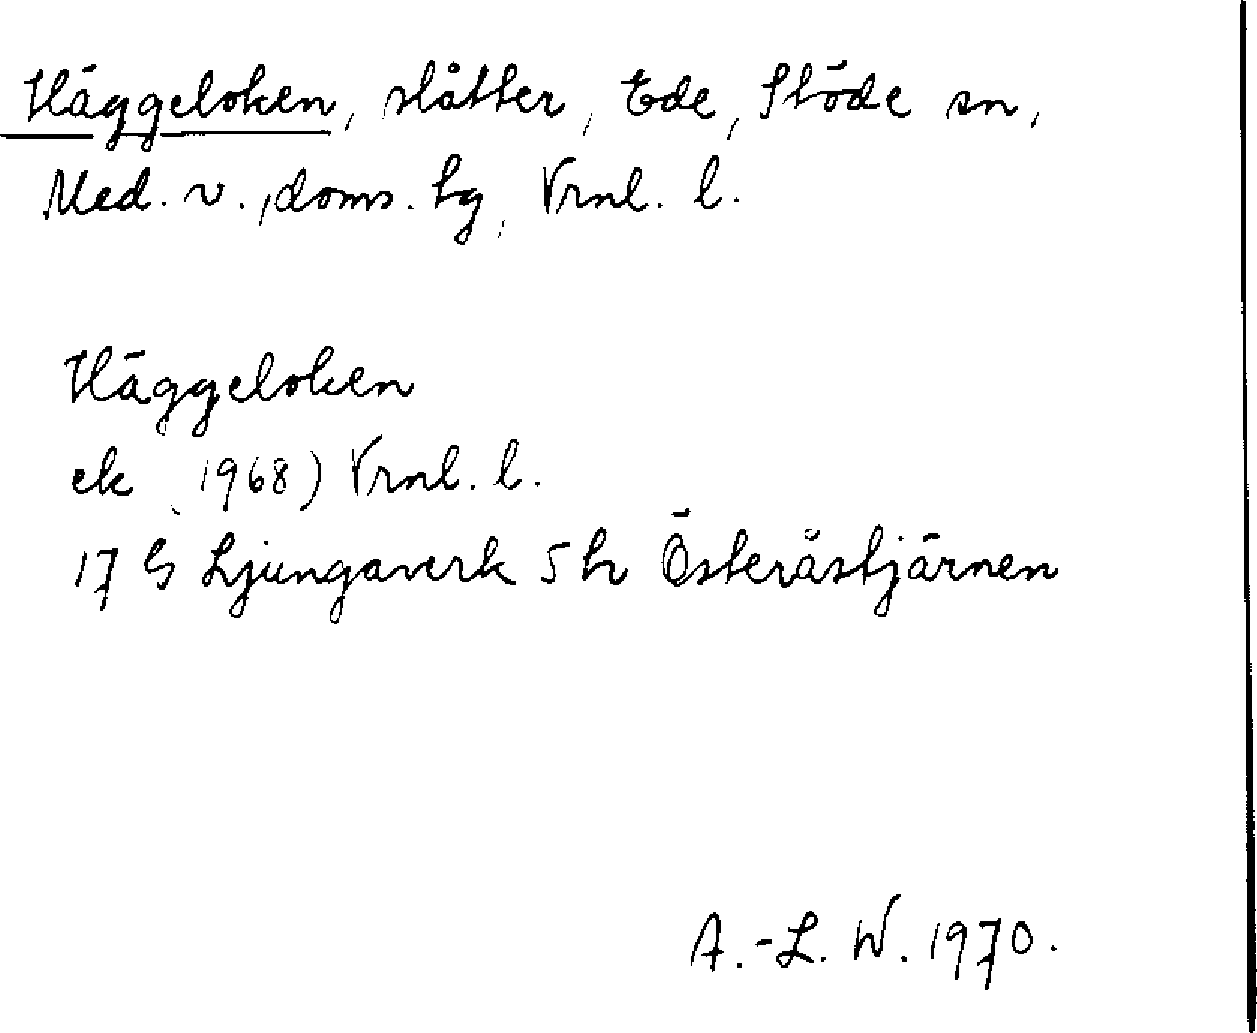 Häggeloken, slåtter, Ede, Stöde sn,
Med. v., doms. hg, Vrnl. l.
Häggeloken
ek (1968) Vrnl. l.
17 G Ljungaverk 5 h Österåstjärnen
A.-L. W. 1970.